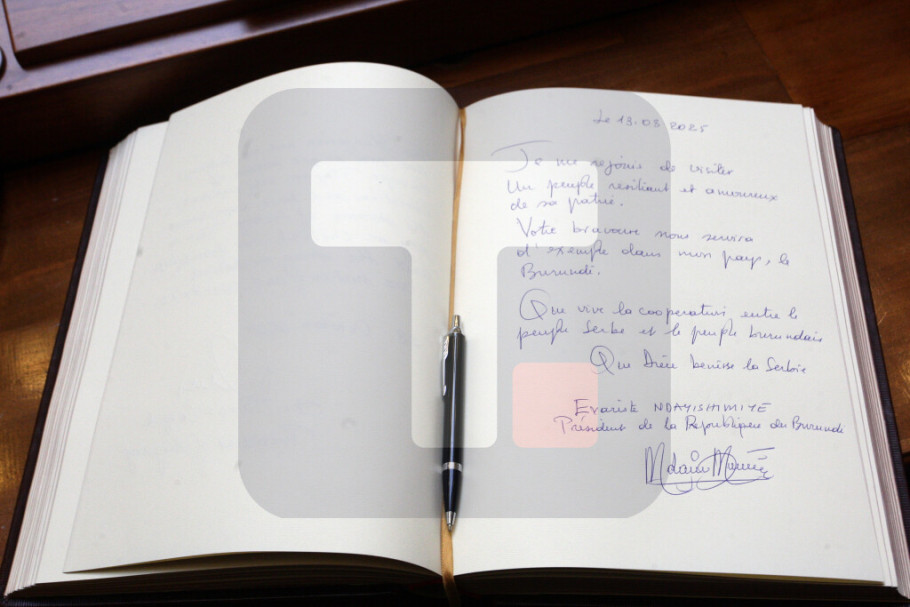 Le 13.03 2025
Je me rejouis de visiter
Un peuple resiliant et amoureux
de sa patrie.
Votre bravoure nous servira
d'exemple dans mon pays, le
Burundi.
Que vive la cooperation entre le
peuple Serbe et le peuple burundais
Que Dieu benisse la Serbie
Evariste NDAYISHIMIYE
Président de la Republique du Burundi